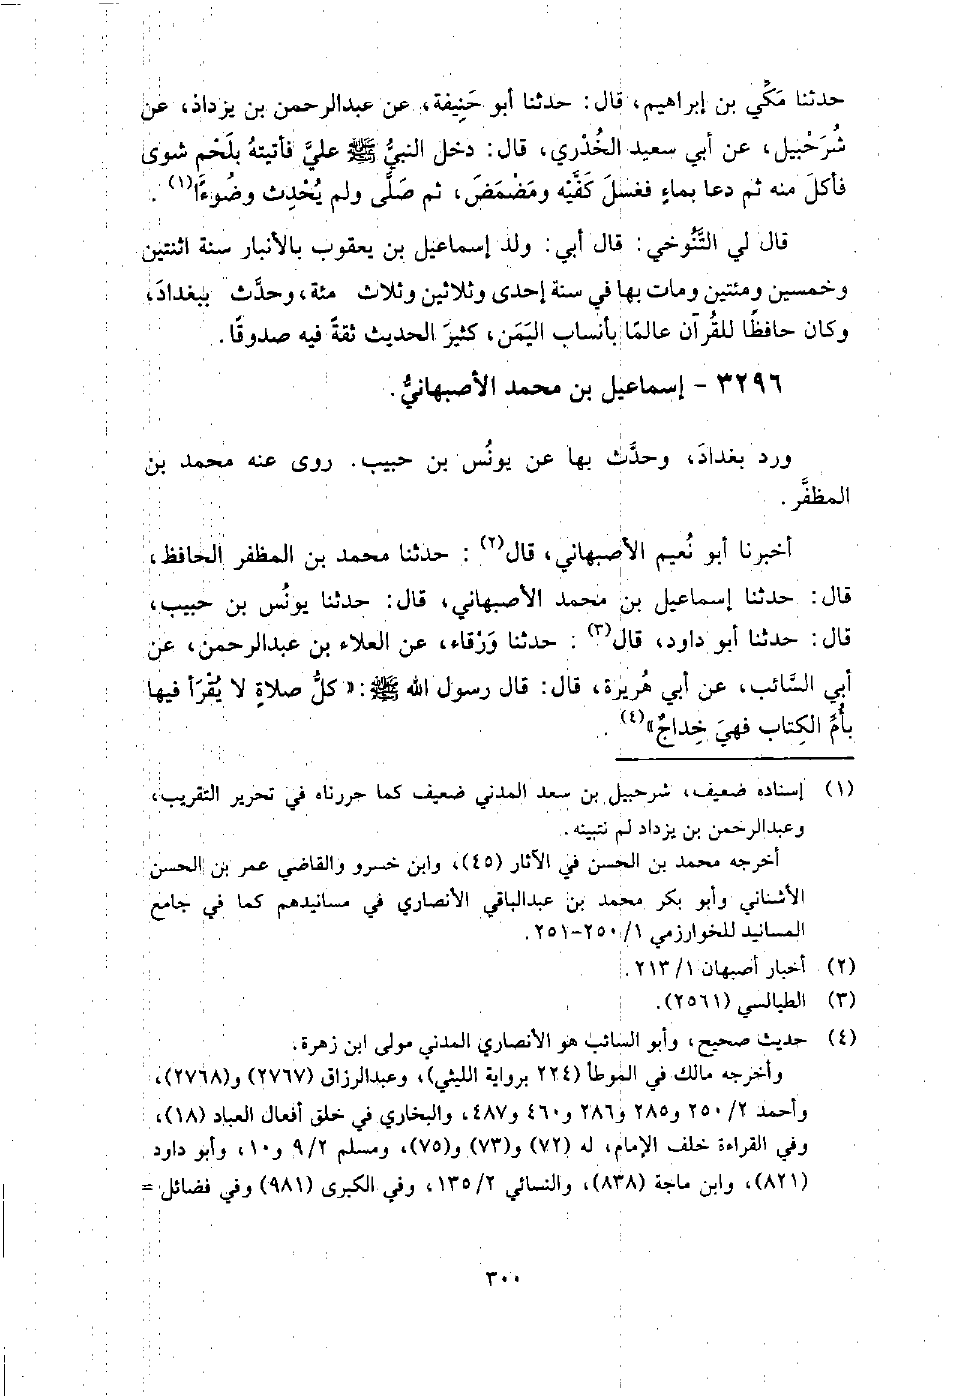 حدثنا مَكِّي بن إبراهيم، قال: حدثنا أبو حَنِيفة، عن عبدالرحمن بن يزداذ، عن
شُرَحْبيل، عن أبي سعيد الخُدْري، قال: دخل النبيُّ ﷺ عليَّ فأتيتهُ بلَحْم شوى
فأكلَ منه ثم دعا بماءٍ فغسلَ كَفَّيْه ومَضْمَضَ، ثم صَلَّى ولم يُحْدِث وضُوءًا(١) .
قال لي التَّنُوخي: قال أبي: ولد إسماعيل بن يعقوب بالأنبار سنة اثنتين
وخمسين ومئتين ومات بها في سنة إحدى وثلاثين وثلاث مئة، وحدَّث ببغدادَ،
وكان حافظًا للقُرآن عالمًا بأنساب اليَمَن، كثيرَ الحديث ثقةً فيه صدوقًا.
٣٢٩٦ - إسماعيل بن محمد الأصبهانيُّ.
ورد بغدادَ، وحدَّث بها عن يونُس بن حبيب. روى عنه محمد بن
المظفَّر.
أخبرنا أبو نُعيم الأصبهاني، قال(٢) : حدثنا محمد بن المظفر الحافظ،
قال: حدثنا إسماعيل بن محمد الأصبهاني، قال: حدثنا يونُس بن حبيب،
قال: حدثنا أبو داود، قال(٣) : حدثنا وَرْقاء، عن العلاء بن عبدالرحمن، عن
أبي السَّائب، عن أبي هُريرة، قال: قال رسول الله ﷺ: «كلُّ صلاةٍ لا يُقْرَأ فيها
بأُمِّ الكِتاب فهيَ خِداجٌ»(٤) .
(١) إسناده ضعيف، شرحبيل بن سعد المدني ضعيف كما حررناه في تحرير التقريب،
وعبدالرحمن بن يزداد لم نتبينه.
أخرجه محمد بن الحسن في الآثار (٤٥)، وابن خسرو والقاضي عمر بن الحسن
الأشناني وأبو بكر محمد بن عبدالباقي الأنصاري في مسانيدهم كما في جامع
المسانيد للخوارزمي ١/ ٢٥٠-٢٥١.
(٢) أخبار أصبهان ١/ ٢١٣.
(٣) الطيالسي (٢٥٦١).
(٤) حديث صحيح، وأبو السائب هو الأنصاري المدني مولى ابن زهرة.
وأخرجه مالك في الموطأ (٢٢٤ برواية الليثي)، وعبدالرزاق (٢٧٦٧) و(٢٧٦٨)،
وأحمد ٢/ ٢٥٠ و٢٨٥ و٢٨٦ و٤٦٠ و٤٨٧، والبخاري في خلق أفعال العباد (١٨)،
وفي القراءة خلف الإمام، له (٧٢) و(٧٣) و(٧٥)، ومسلم ٢/ ٩ و١٠، وأبو داود
(٨٢١)، وابن ماجة (٨٣٨)، والنسائي ٢/ ١٣٥، وفي الكبرى (٩٨١) وفي فضائل =
٣٠٠